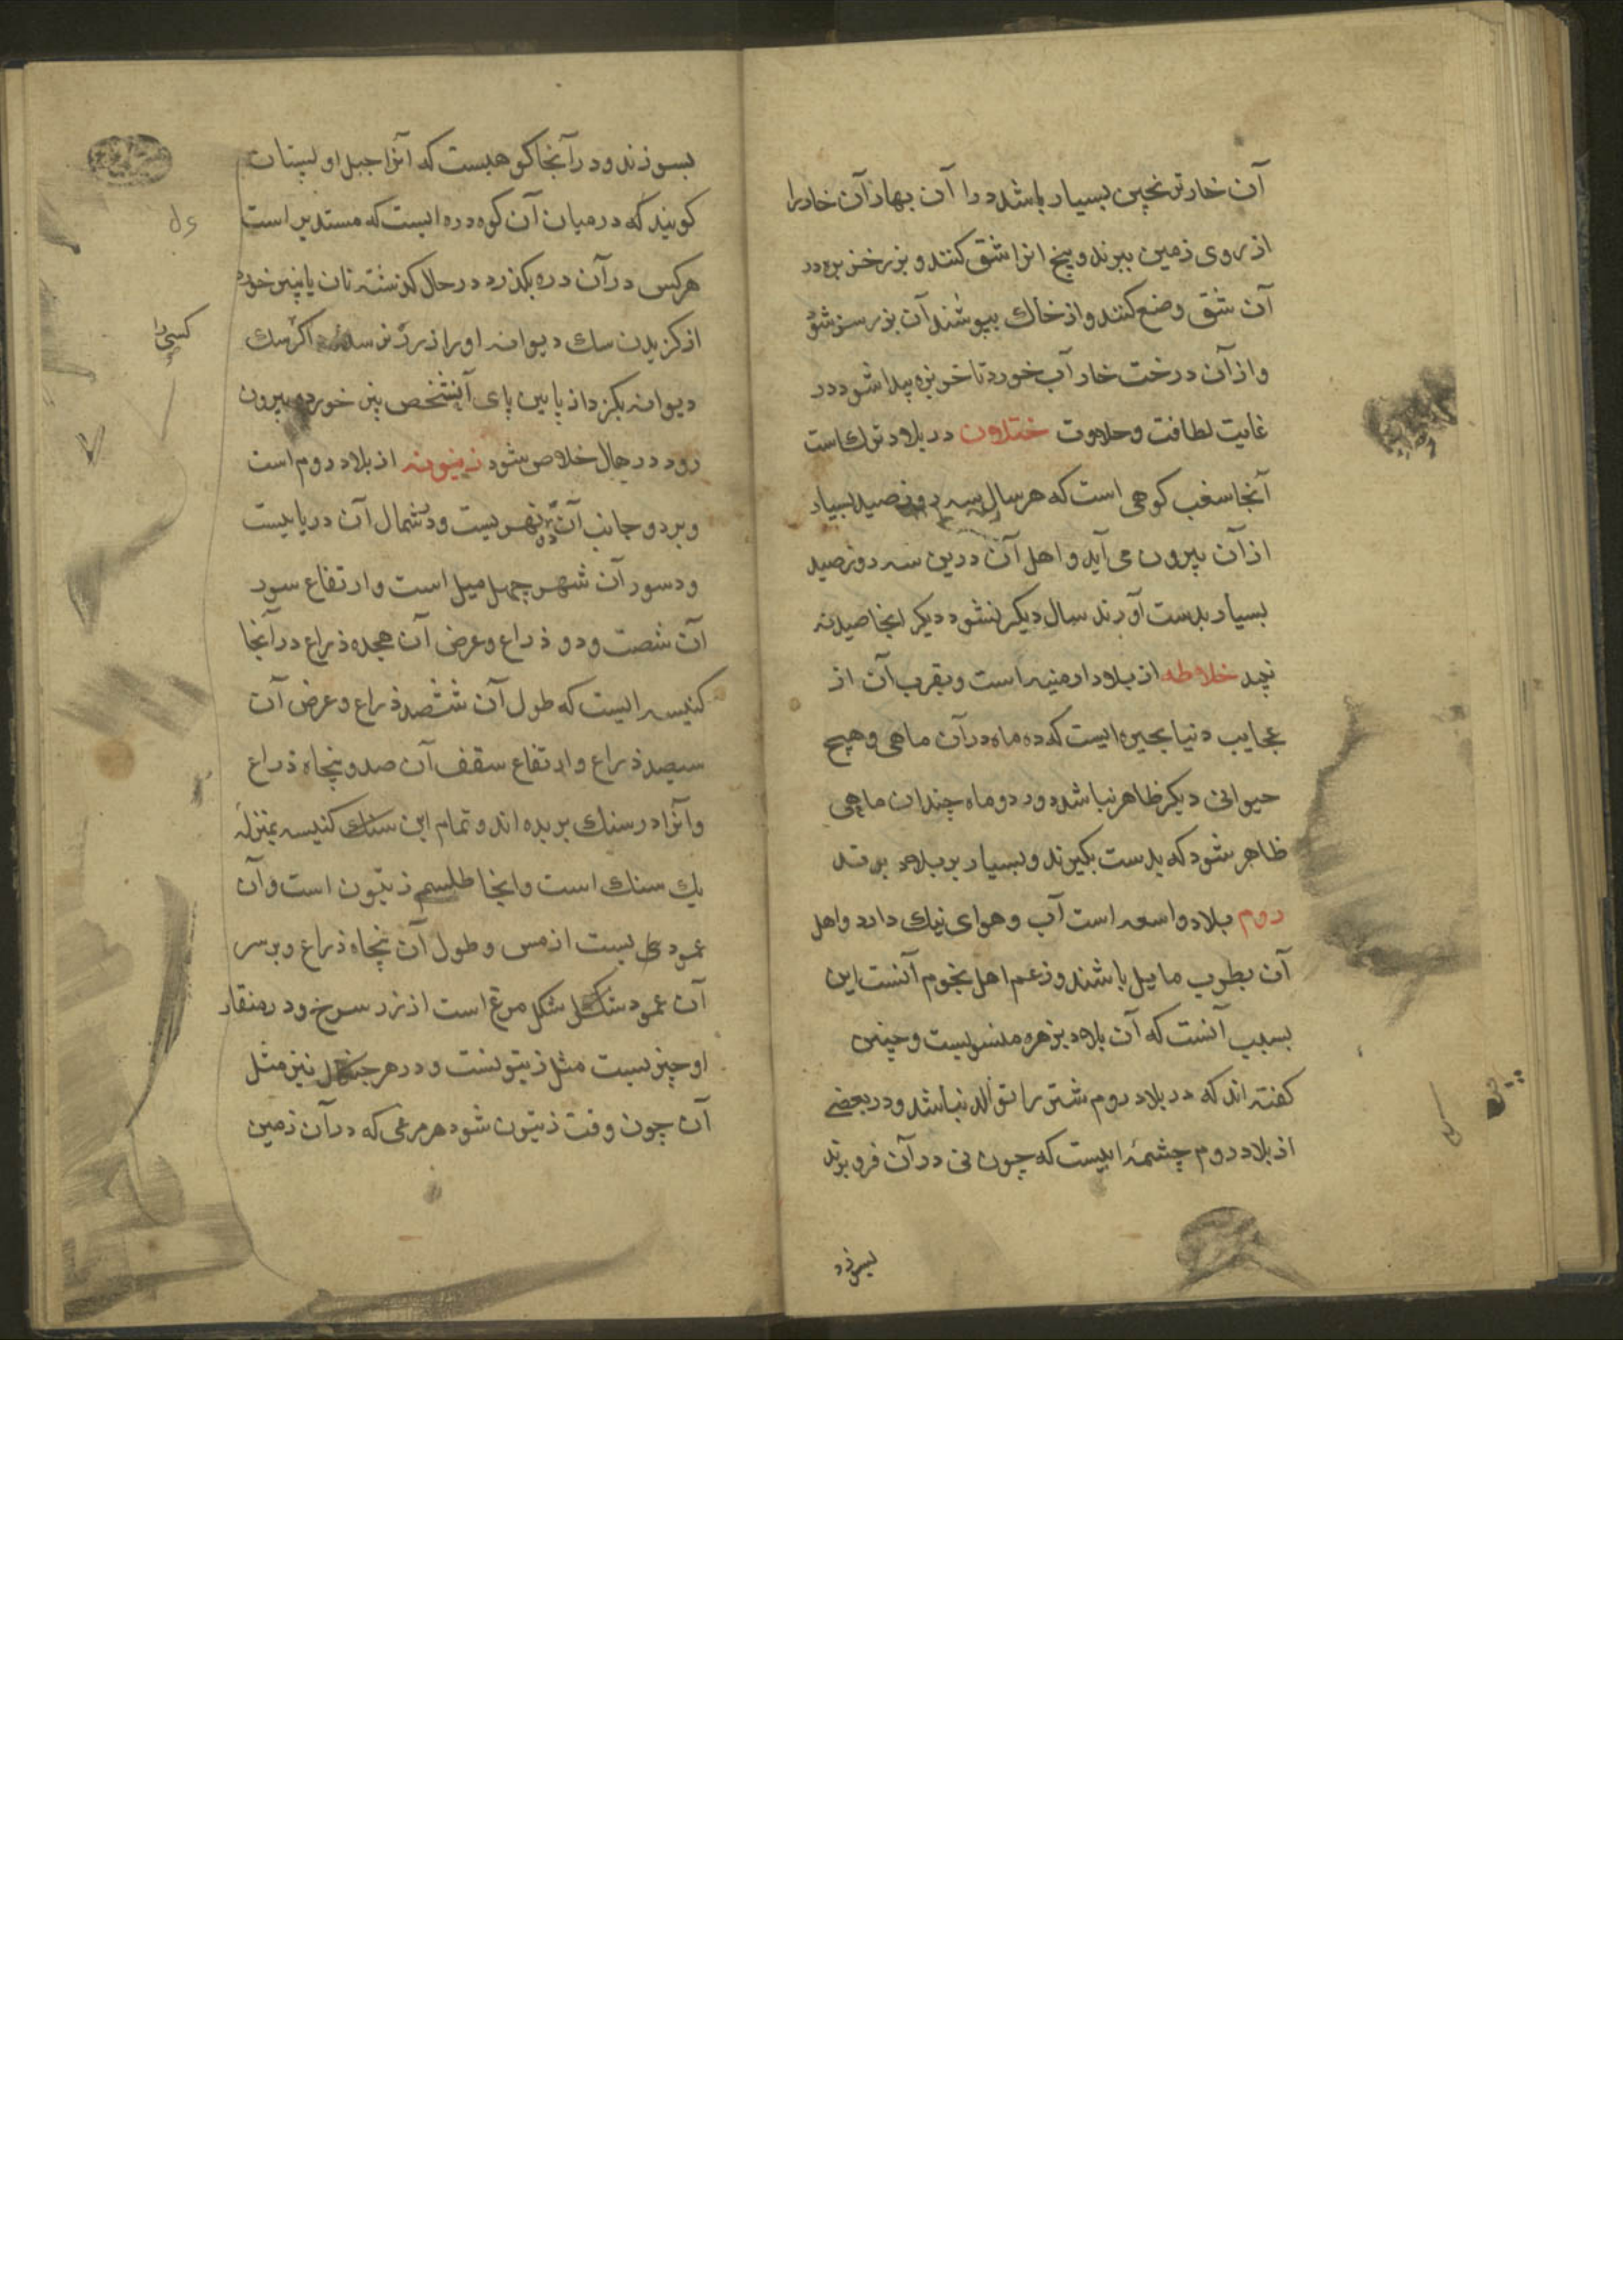 آن خار ترنجبین بسیار باشد و را آن بهار آن خار را
از روی زمین ببرند و بیخ انرا شق کنند و بزر خربزه در
آن شق وضع کنند و از خاک بپوشند آن بزر سبز شود
و از آن درخت خار آب خورد تا خربزه پیدا شود در
غایت لطافت و حلاوت ختلان در بلاد ترک است
آنجا سغب کوهی است که هر سال سه روز صید بسیار
از آن بیرون می آید و اهل آن درین سه روز صید
بسیار بدست آورند سال دیکر نشود دیکر انجا صید نه
نچد خلاطه از بلاد ارمنیه است و بقرب آن از
عجایب دنیا بحیره ایست که ده ماه در آن ماهی و هیچ
حیوانی دیکر ظاهر نباشد و در دو ماه چندان ماهی
ظاهر شود که بدست بکیرند و بسیار بر بلاد برند
روم بلاد واسعه است آب و هوای نیک دارد و اهل
آن بطرب مایل باشند و زعم اهل نجوم آنست این
بسبب آنست که آن بلاد بزهره منسوبست و چنین
کفته اند که در بلاد روم شتر را توالد نباشد و در بعضی
از بلاد روم چشمهٔ ایست که چون نی در آن فرو برند
بسوزد
بسوزند و در آنجا کوهیست که انرا جبل اولستان
کویند که در میان آن کوه دره ایست که مستدیر است
هرکس در آن دره بکذرد در حال کذشته نان یا پنیر خورد
از کزیدن سک دیوانه او را ضرر نرسد اکر سک
کسی را
دیوانه بکزد از پایین پای آنشخص پنیر خورده بیرون
رود در حال خلاص شود زیتونه از بلاد روم است
و بر دو جانب آن نهریست و در شمال آن دریاییست
و سور آن شهر چهل میل است و ارتفاع سور
آن شصت و دو ذراع و عرض آن هجده ذراع در آنجا
کنیسه ایست که طول آن ششصد ذراع و عرض آن
سیصد ذراع و ارتفاع سقف آن صد و پنجاه ذراع
و آنرا در سنک بریده اند و تمام این سنک کنیسه بمنزلهٔ
یک سنک است و انجا طلسم زیتون است و آن
عمودی بست از مس و طول آن پنجاه ذراع و بر سر
آن عمود شکل شکل مرغ است از زر سرخ و در منقار
او چیزیست مثل زیتونست و در هر چنکل نیز مثل
آن چون وقت زیتون شود هر مرغی که در آن زمین